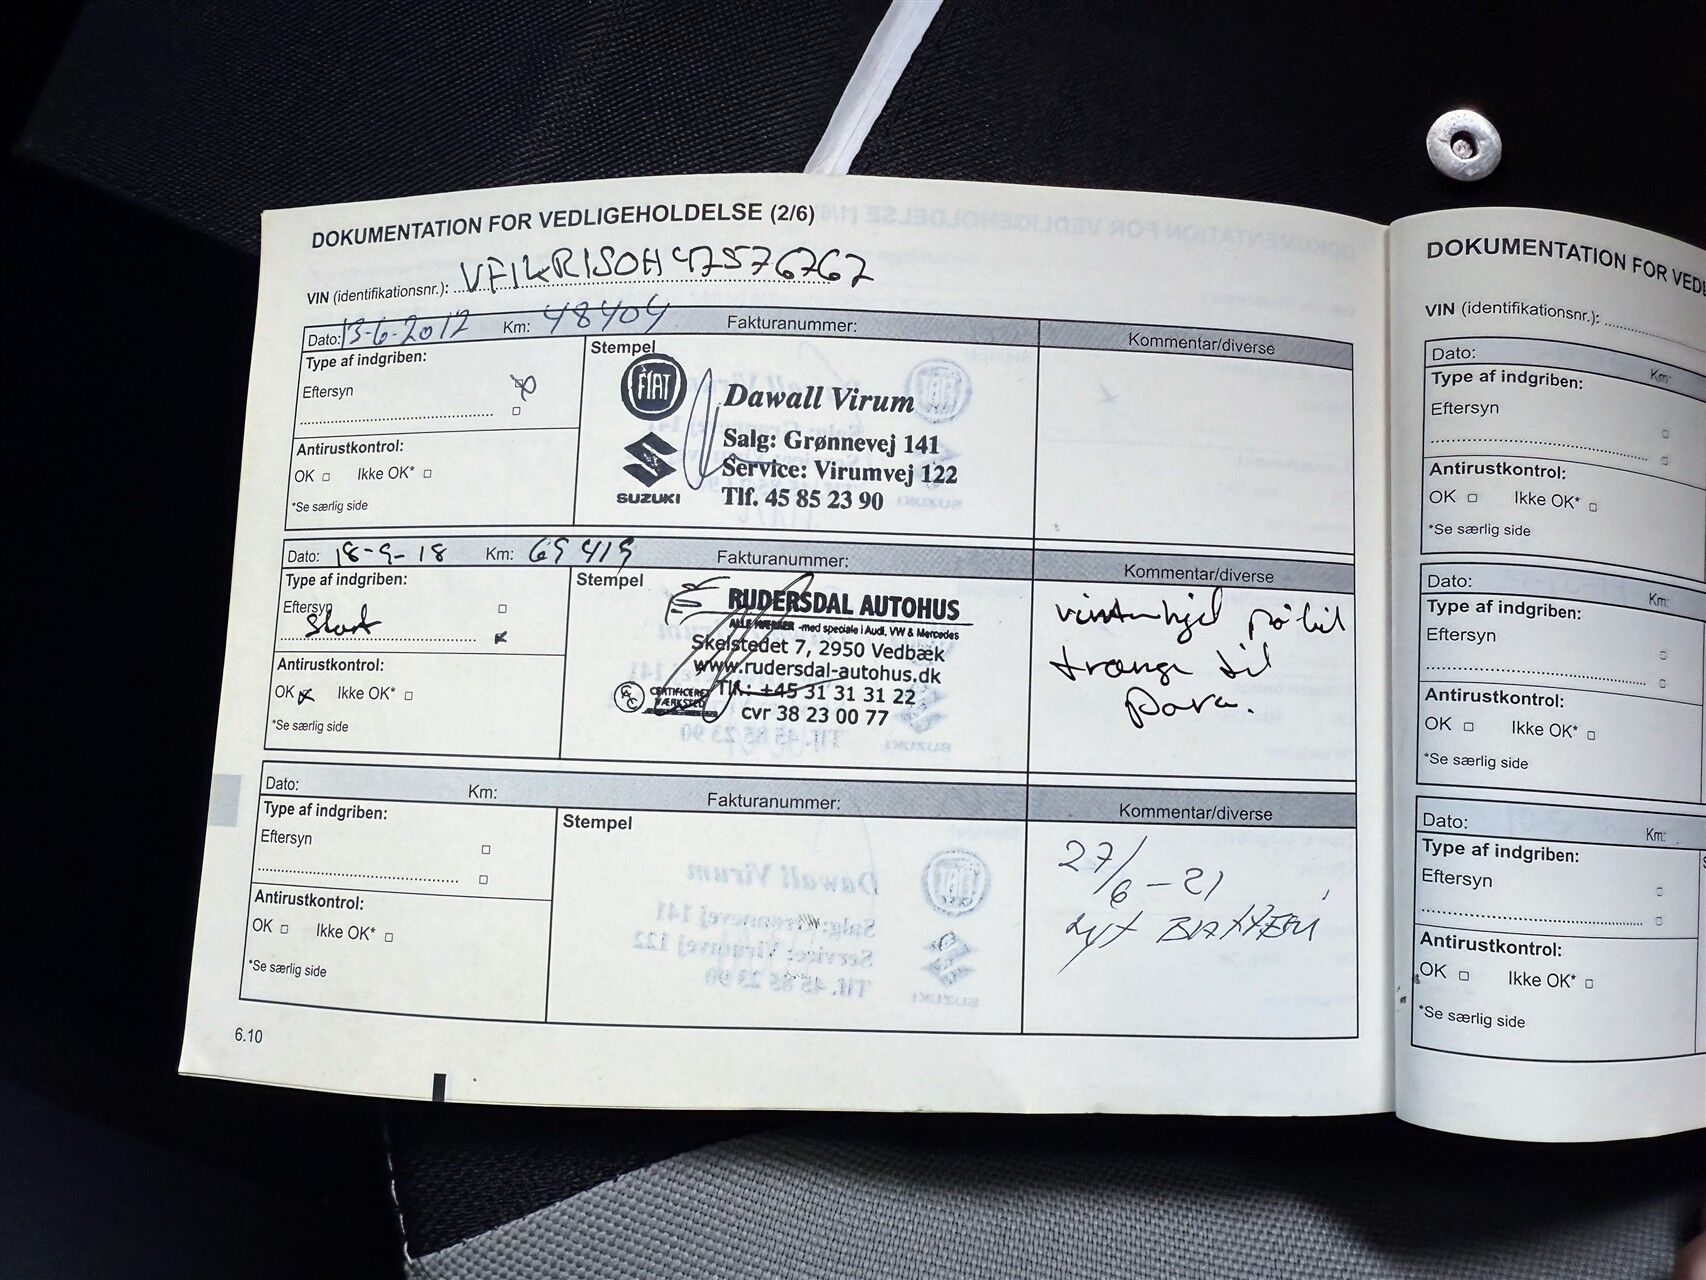 DOKUMENTATION FOR VEDLIGEHOLDELSE (2/6)
VIN (identifikationsnr.): VF1KRISOH47576767
Dato: 13-6-2012 Km: 48404 Fakturanummer: Kommentar/diverse
Type af indgriben:
Eftersyn
Antirustkontrol:
OK Ikke OK*
*Se særlig side
Stempel
FIAT
SUZUKI
Dawall Virum
Salg: Grønnevej 141
Service: Virumvej 122
Tlf. 45 85 23 90
Dato: 18-9-18 Km: 69419 Fakturanummer: Kommentar/diverse
Type af indgriben:
Eftersyn
Stort
Antirustkontrol:
OK Ikke OK*
*Se særlig side
Stempel
RUDERSDAL AUTOHUS
ALLE MÆRKER -med speciale i Audi, VW & Mercedes
Skelstedet 7, 2950 Vedbæk
www.rudersdal-autohus.dk
Tlf.: +45 31 31 31 22
CERTIFICERET VÆRKSTED
cvr 38 23 00 77
vinterhjul på bil
trænge til
Dato: Km: Fakturanummer: Kommentar/diverse
Type af indgriben:
Eftersyn
Antirustkontrol:
OK Ikke OK*
*Se særlig side
Stempel
27/6-21
nyt BATTERI
6.10
DOKUMENTATION FOR
VIN (identifikationsnr.):
Dato: Km:
Type af indgriben:
Eftersyn
Antirustkontrol:
OK Ikke OK*
*Se særlig side
Dato: Km:
Type af indgriben:
Eftersyn
Antirustkontrol:
OK Ikke OK*
*Se særlig side
Dato: Km:
Type af indgriben:
Eftersyn
Antirustkontrol:
OK Ikke OK*
*Se særlig side